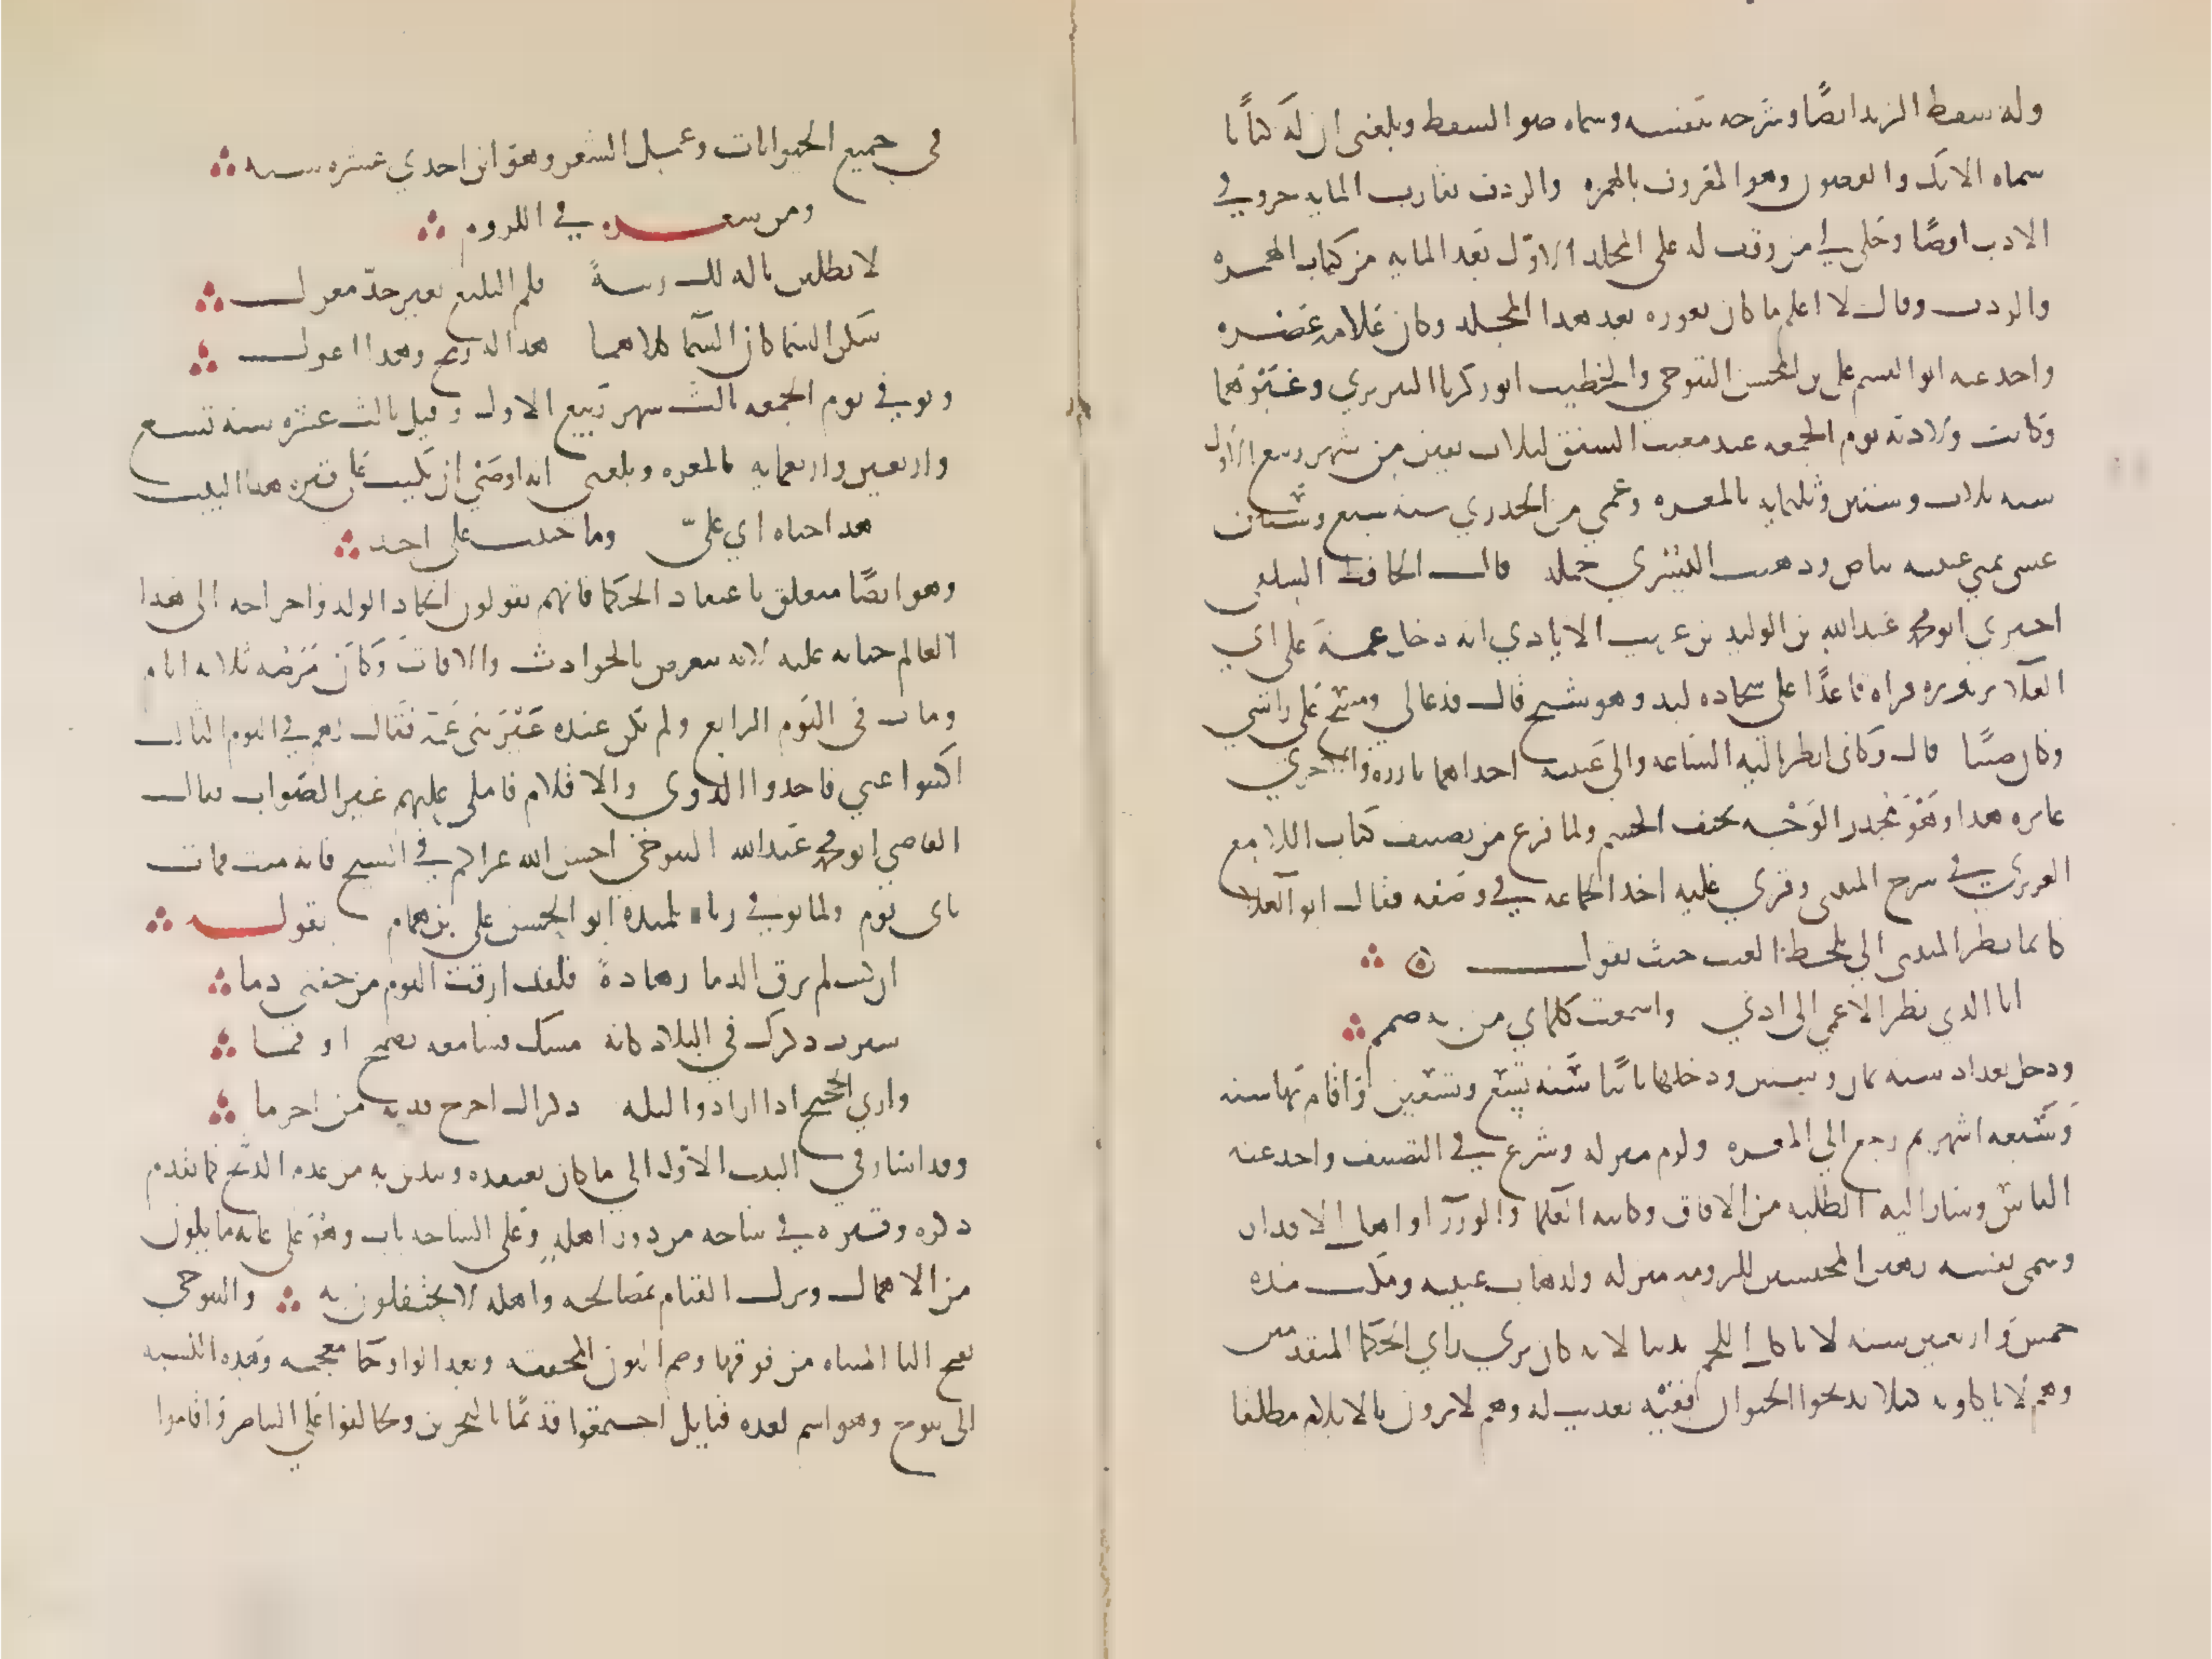 وله سقط الزند ايضًا وشرحه بنفسه وسماه ضو السقط وبلغني ان له كتابًا
سماه الايك والغصون وهو المعروف بالهمزه والردف يقارب المايه جزو في
الادب ايضًا وحكى لي من وقف له على المجلد الاول بعد المايه من كتاب الهمزه
والردف وقال لا اعلم ما كان يعوزه بعد هذا المجلد وكان علامه عصره
واخذ عنه ابو القسم علي بن المحسن التنوخي والخطيب ابو زكريا التبريزي وغيرهما
وكانت ولادته يوم الجمعه عند مغيب الشفق لثلاث بقين من شهر ربيع الاول
سنه ثلاث وستين وثلثمايه بالمعره وعمي من الجدري سنه سبع وستين
غشى يمنى عينيه بياض وذهبت اليسرى جمله قال الحافظ السلفي
اخبرني ابو محمد عبدالله بن الوليد بن غريب الايادي انه دخل مع عمه على ابي
العلا يزوره فراه قاعدًا على سجاده لبد وهو شيخ قال فدعا لي ومسح على راسي
وكان صبيًا قال وكاني انظر اليه الساعه والى عينيه احداهما نادره والاخرى
غايره جدا وهو مجدر الوجه نحيف الجسم ولما فرغ من تصنيف كتاب اللامع
العزيزي في شرح المتنبي وقري عليه اخذ الجماعه في وصفه فقال ابو العلا
كانما نظر المتنبي الي بلحظ الغيب حيث يقول
انا الذي نظر الاعمى الى ادبي واسمعت كلماتي من به صمم
ودخل بغداد سنه ثمان وتسعين ودخلها ثانيًا سنه تسع وتسعين واقام بها سنه
وسبعه اشهر ثم رجع الى المعره ولزم منزله وشرع في التصنيف واخذ عنه
الناس وسار اليه الطلبه من الافاق وكاتبه العلما والوزرا واهل الاقدار
وسمى نفسه رهين المحبسين للزومه منزله ولذهاب عينيه ومكث مده
خمس واربعين سنه لا ياكل اللحم تدينا لانه كان يرى راي الحكما المتقدمين
وهم لا ياكلونه كيلا يذبحوا الحيوان ففيه تعذيب له وهم لا يرون بالايلام مطلقا
في جميع الحيوانات وعمل الشعر وهو ابن احدي عشره سنه
ومن شعره في اللزوم
لا تطلبن باله لك رتبةً قلم البليغ بغير جدّ مغزل
سكن السما كان السما كلاهما هذا له رمح وهذا اعزل
وتوفي يوم الجمعه ثالث شهر ربيع الاول وقيل ثالث عشره سنه تسع
واربعين واربعمايه بالمعره وبلغني انه اوصى ان يكتب على قبره هذا البيت
هذا جناه ابي علىّ وما جنيت على احد
وهو ايضًا متعلق باعتقاد الحكما فانهم يقولون ايجاد الولد واخراجه الى هذا
العالم جنايه عليه لانه يتعرض للحوادث والافات وكان مرضه ثلاثه ايام
ومات في اليوم الرابع ولم يكن عنده غير بني عمه فقال لهم في اليوم الثالث
اكتبوا عني فاخذوا الدوى والاقلام فاملى عليهم غير الصواب فقال
القاضي ابو محمد عبدالله التنوخي احسن الله عزاكم في الشيخ فانه ميت فمات
ثاني يوم ولما توفي رثاه تلميذه ابو الحسن علي بن همام بقوله
ان كنت لم ترق الدما زهادةً فلقد ارقت اليوم من جفني دما
سيرت ذكرك في البلاد كانه مسك فسامعه يضمخ او فما
واري الحجيج اذا ارادوا ليله ذكراك اخرج فديه من احرما
وقد اشار في البيت الاول الى ما كان يعتقده ويتدين به من عدم الذبح كما تقدم
ذكره وقبره في ساحه من دور اهله وعلى الساحه باب وهو على غايه ما يكون
من الاهمال وترك القيام بمصالحه واهله لا يحتفلون به والتنوخي
بفتح التا المثناه من فوقها وضم النون المخففه وبعد الواو خا معجمه وهذه النسبه
الى تنوخ وهو اسم لعده قبايل اجتمعوا قديمًا بالبحرين وتحالفوا على التناصر واقاموا